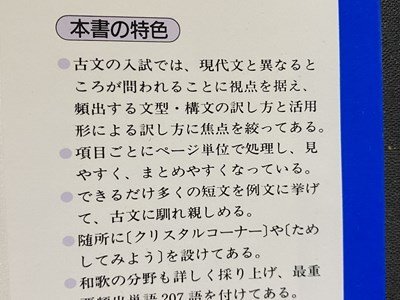 本書の特色
●古文の入試では、現代文と異なると
ころが問われることに視点を据え、
頻出する文型・構文の訳し方と活用
形による訳し方に焦点を絞ってある。
●項目ごとにページ単位で処理し、見
やすく、まとめやすくなっている。
●できるだけ多くの短文を例文に挙げ
て、古文に馴れ親しめる。
●随所に〔クリスタルコーナー〕や〔ため
してみよう〕を設けてある。
●和歌の分野も詳しく採り上げ、最重
要頻出単語207語を付けてある。